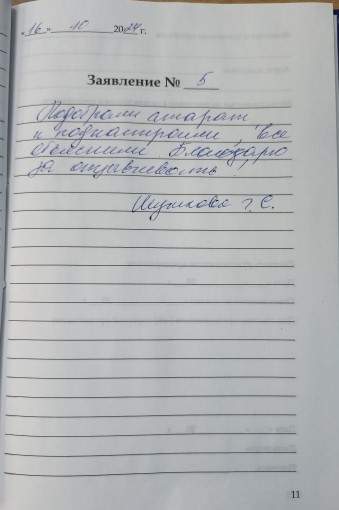 «16» 10 2024 г.
Заявление № 5
Подобрали аппарат
и поднастроили, все
объяснили. Благодарю
за отзывчивость
Г. С.
11